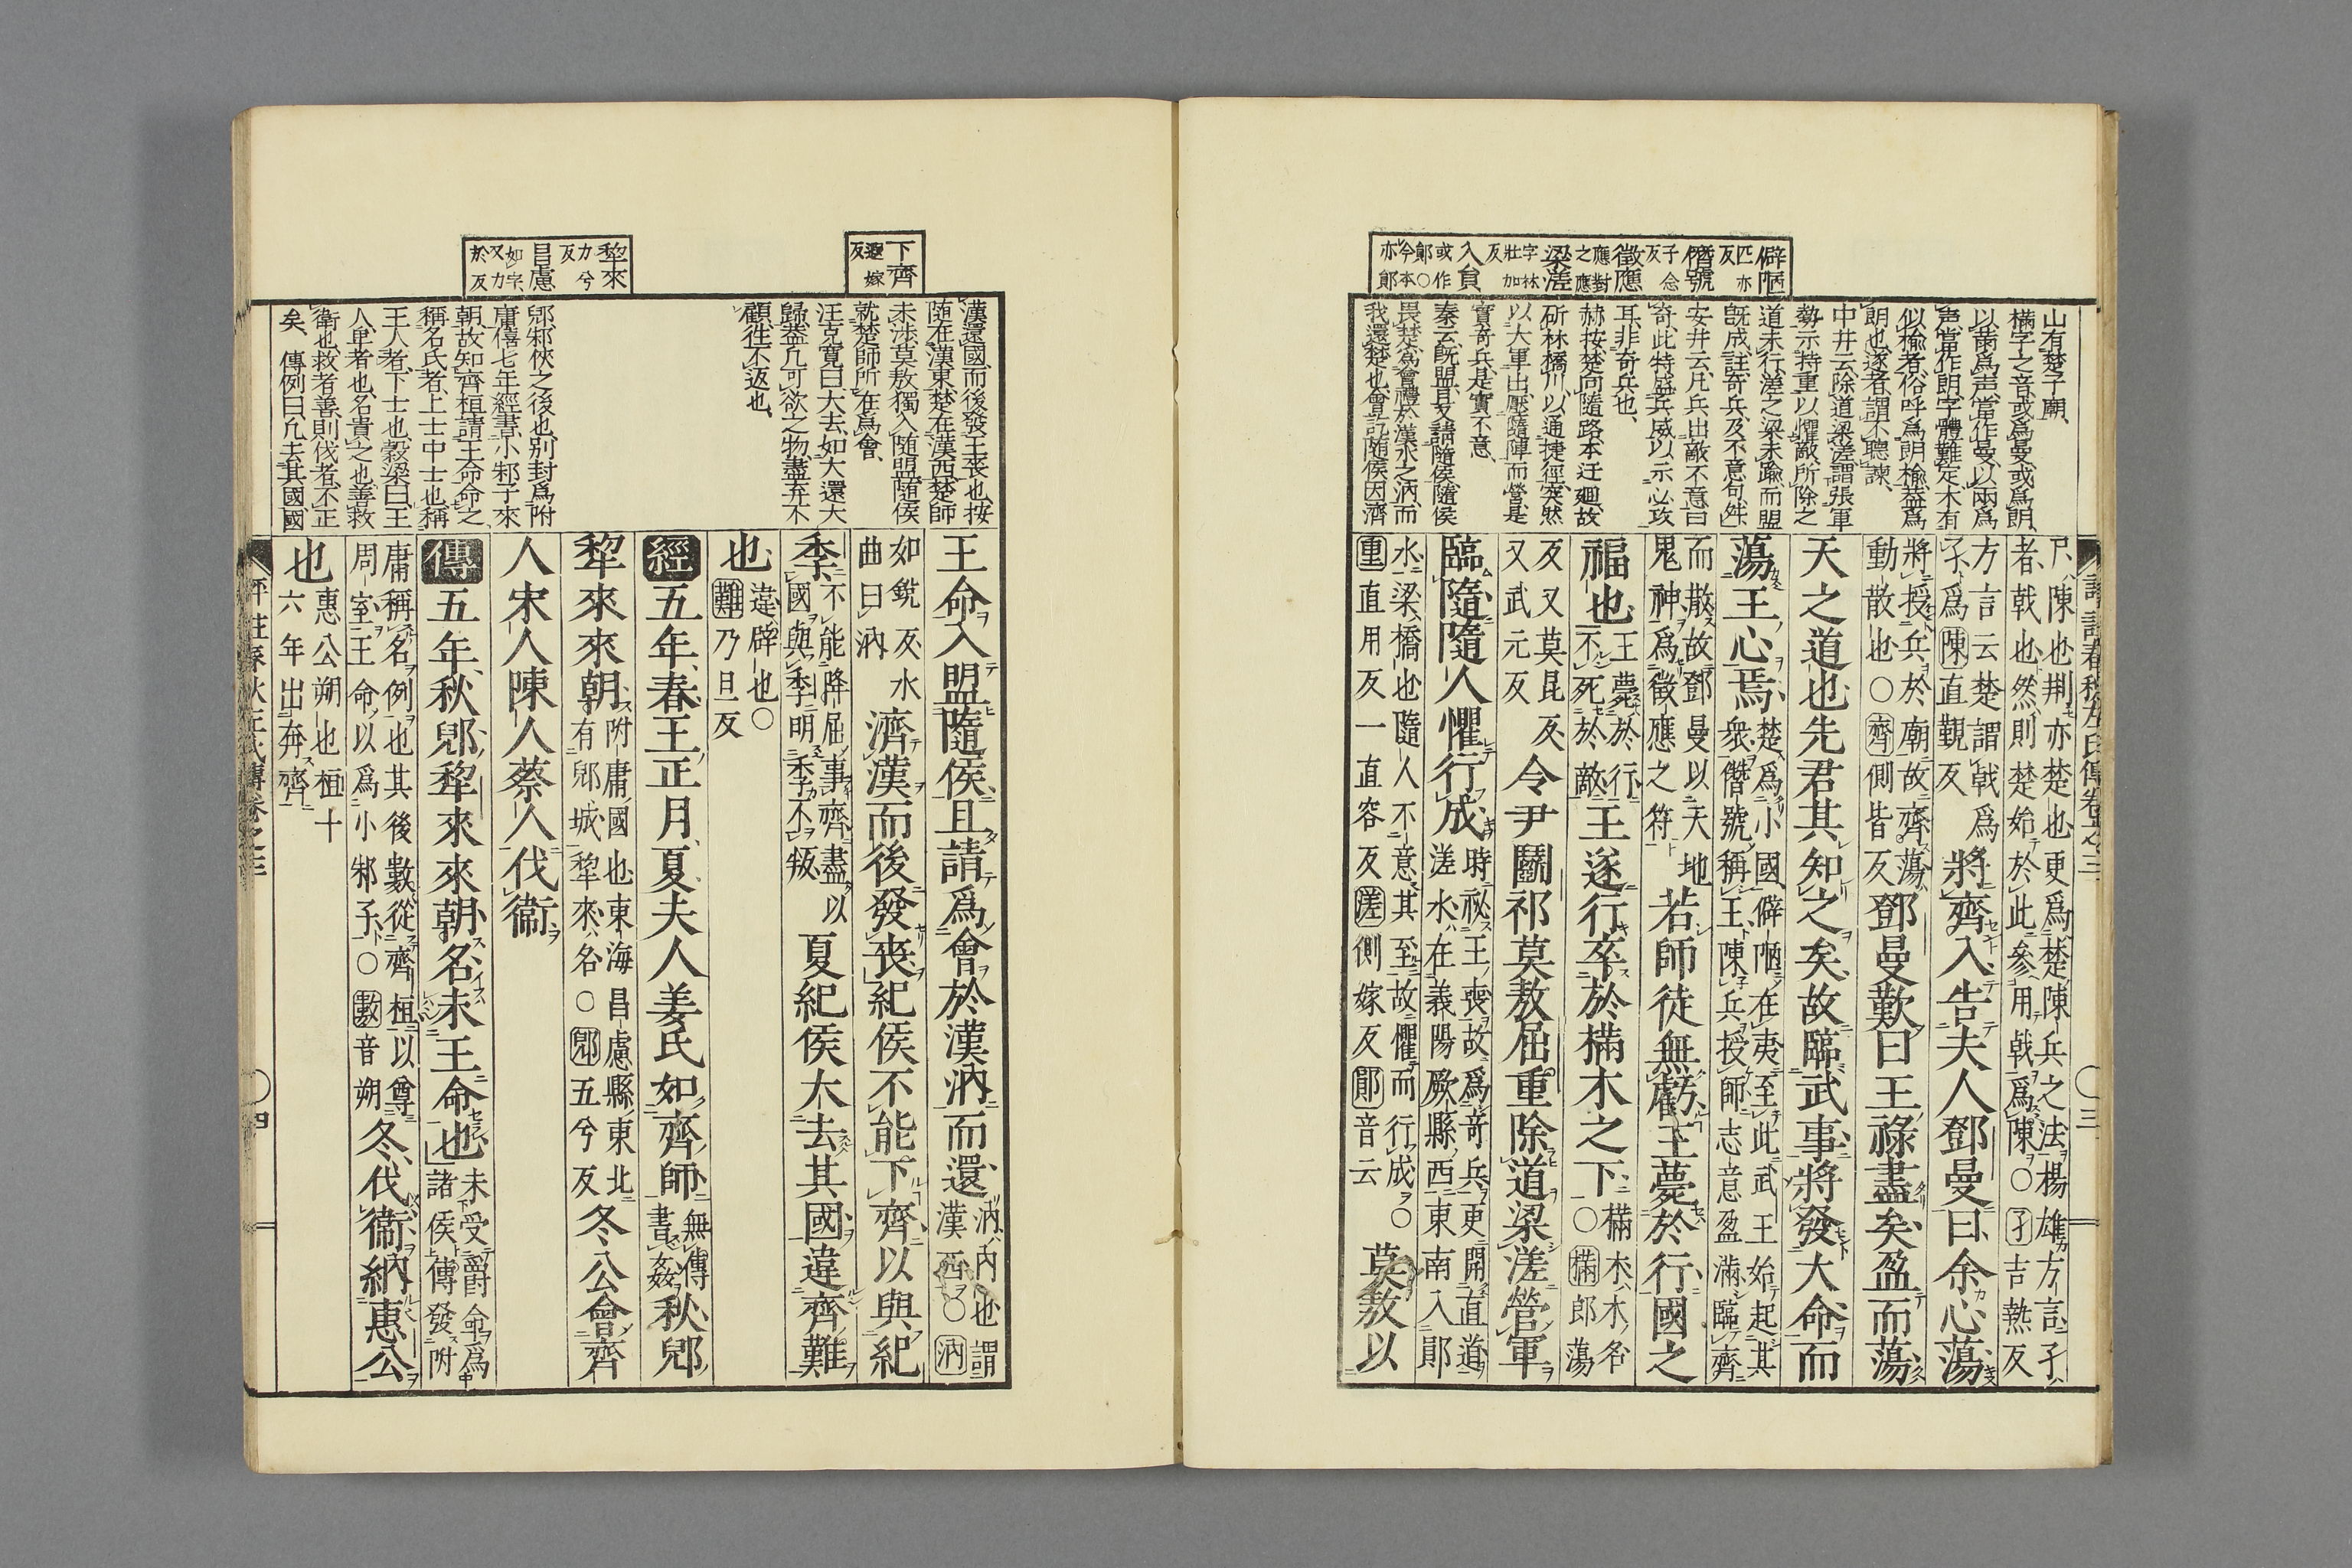 僻陋
匹亦
反
僭號
子念
反
徵應
應對
之應
梁溠
字林
壯加
反
入員
或作
鄖〇
今本
亦鄖
山有楚子廟、
樠字之音、或爲曼、或爲朗、
以㒼爲声、當作曼、以兩爲
声、當作朗、字體難定、木有
似榆者、俗呼爲朗榆、蓋爲
朗也、逐者、謂不聽諫、
中井云、除道梁溠、謂張軍
勢、示持重以懼敵、所除之
道未行、溠之梁未踰而盟
既成、註奇兵及不意句、舛
安井云、凡兵出敵不意曰
奇、此特盛兵威、以示必攻
耳、非奇兵也、
赫按楚向隨路本迂迴、故
斫林橋川、以通捷徑、突然
以大軍出壓隨陣而營、是
實奇兵、是實不意、
秦云、既盟、且又請隨侯、隨侯
畏楚、爲會禮於漢水之汭、而
我還楚也、會訖、隨侯因濟
尸、陳也、荆亦楚也、更爲楚陳兵之法、楊雄方言、孑
者、戟也、然則楚始於此參用戟爲陳、〇孑吉熱反
方言云、楚謂戟爲
孑、爲陳直覲反
將齊入告夫人鄧曼曰、余心蕩
將授兵於廟、故齊、蕩
動散也、〇齊側皆反
鄧曼歎曰王祿盡矣、盈而蕩、
天之道也、先君其知之矣、故臨武事將發大命、而
蕩王心焉、
楚爲小國、僻陋在夷、至此武王始起其
衆、僭號稱王、陳兵授師、志意盈滿、臨齊
而散、故鄧曼以天地
鬼神爲徵應之符
若師徒無虧王薨於行、國之
福也、
王薨於行、
不死於敵
王遂行、卒於樠木之下、
樠木、木名
〇樠郎蕩
反、又莫昆反、
又武元反
令尹鬬祁莫敖屈重除道梁溠營軍
臨隨隨人懼行成
時祕王喪、故爲奇兵、更開直道、
溠水、在義陽厥縣西、東南入鄖
水、梁、橋也、隨人不意其至、故懼而行成、〇
重直用反一直容反溠側嫁反鄖音云
莫敖以
下齊
遐嫁
反
犂來
力兮
反
昌慮
如字、
又力
於反
漢還國、而後發王喪也、按
隨在漢東、楚在漢西、楚師
未渉、莫敖獨入隨盟、隨侯
就楚師所在爲會、
汪克寛曰、大去、如大還大
歸、蓋凡可欲之物、盡弃不
顧、徃不返也、
郳、邾俠之後也、别封爲附
庸、僖七年經書小邾子來
朝、故知齊桓請王命命之、
稱名氏者、上士中士也、稱
王人者、下士也、穀梁曰、王
人、卑者也、名、貴之也、善救
衛也、救者善、則伐者不正
矣、傳例曰、凡去其國、國
王命入盟隨侯、且請爲會於漢汭而還、
汭、内也、謂
漢西、〇汭
如鋭反、水
曲曰汭
濟漢而後發喪、紀侯不能下齊以與紀
季、
不能降屈事齊、盡以
國與季、明季不叛、
夏紀侯大去其國違齊難
也、
違、辟也、〇
難乃旦反
經五年、春王正月、夏夫人姜氏如齊師
無傳
書姦
秋郳
犂來來朝
附庸國也、東海昌慮縣東北
有郳城、犂來、名、〇郳五兮反
冬公會齊
人宋人陳人蔡人伐衞
傳五年、秋郳犂來來朝、名未王命也
未受爵命爲
諸侯、傳發附
庸稱名例也、其後數從齊桓以尊
周室、王命以爲小邾子、〇數音朔
冬、伐衞、納惠公
也、
惠公朔也、桓十
六年出奔齊